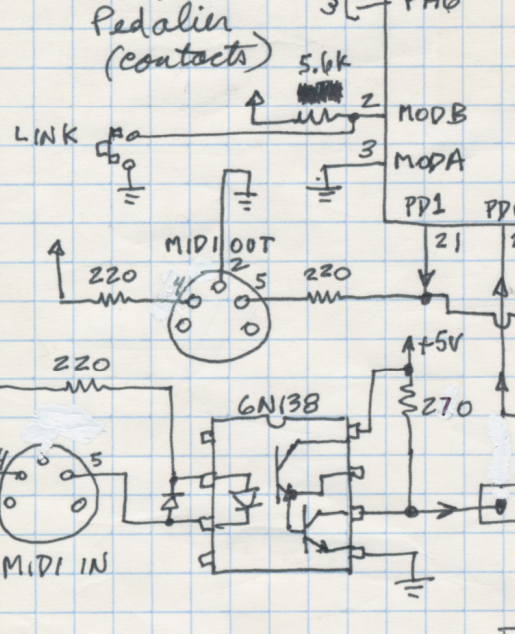 Pedalier
3
PA6
(contacts)
5.6K
2
MODB
LINK
3
MODA
PD1
PD
MIDI OUT
21
2
220
4
5
220
+5V
220
6N138
270
4
5
MIDI IN